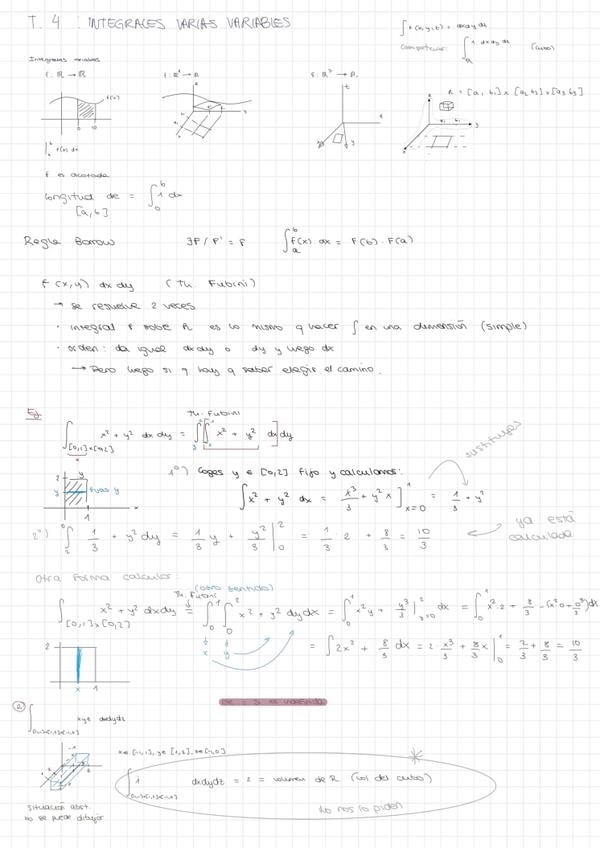 T. 4 : INTEGRALES VARIAS VARIABLES
∫ f(x,y,z) = dxdydz
∫_R 1 dxdydz (cubo)
Integrales
f: R → R
f: R² → R
f: R³ → R
R = [a, b1] x [a2 b2] x [a3 b3]
∫_a^b f(x) dx
f es acotada
Longitud de = ∫_0^b 1 dx
[a,b]
Regla Barrow ∃F / F' = f ∫_a^b f(x) dx = F(b) · F(a)
f(x,y) dxdy (Th. Fubini)
→ se resuelve 2 veces
· integral f sobre R es lo mismo q hacer ∫ en una dimensión (simple)
· orden: da igual dxdy o dy y luego dx
→ Pero luego si q hay q saber elegir el camino.
Ej
Th. Fubini
∫_[0,1]x[0,2] x² + y² dx dy = ∫[∫ x² + y² dx]dy
sustituyes
1º) Coges y ∈ [0,2] fijo y calculamos:
2 y
y fijas y
1 x
∫ x² + y² dx = x³/3 + y² x ]_{x=0}^1 = 1/3 + y²
2º) ∫ 1/3 + y² dy = 1/3 y + y³/3 |_0^2 = 1/3 · 2 + 8/3 = 10/3
ya está calculada
Otra forma calcular:
(otro sentido)
Th. Fubini
∫_[0,1]x[0,2] x² + y² dxdy = ∫_0^1 ∫_0^2 x² + y² dydx = ∫_0^1 x²y + y³/3 |_{y=0}^2 dx = ∫_0^1 x²·2 + 8/3 - (x²0 + 0³/3) dx
x y
= ∫ 2x² + 8/3 dx = 2 · x³/3 + 8/3 x |_0^1 = 2/3 + 8/3 = 10/3
2
x 1
② ∫ xyz dxdydz
x ∈ [-1,1], y ∈ [1,2], z ∈ [-1,0]
∫ 1 dxdydz = 2 = volumen de R (vol del cubo)
No nos lo piden
Situación abst.
no se puede dibujar